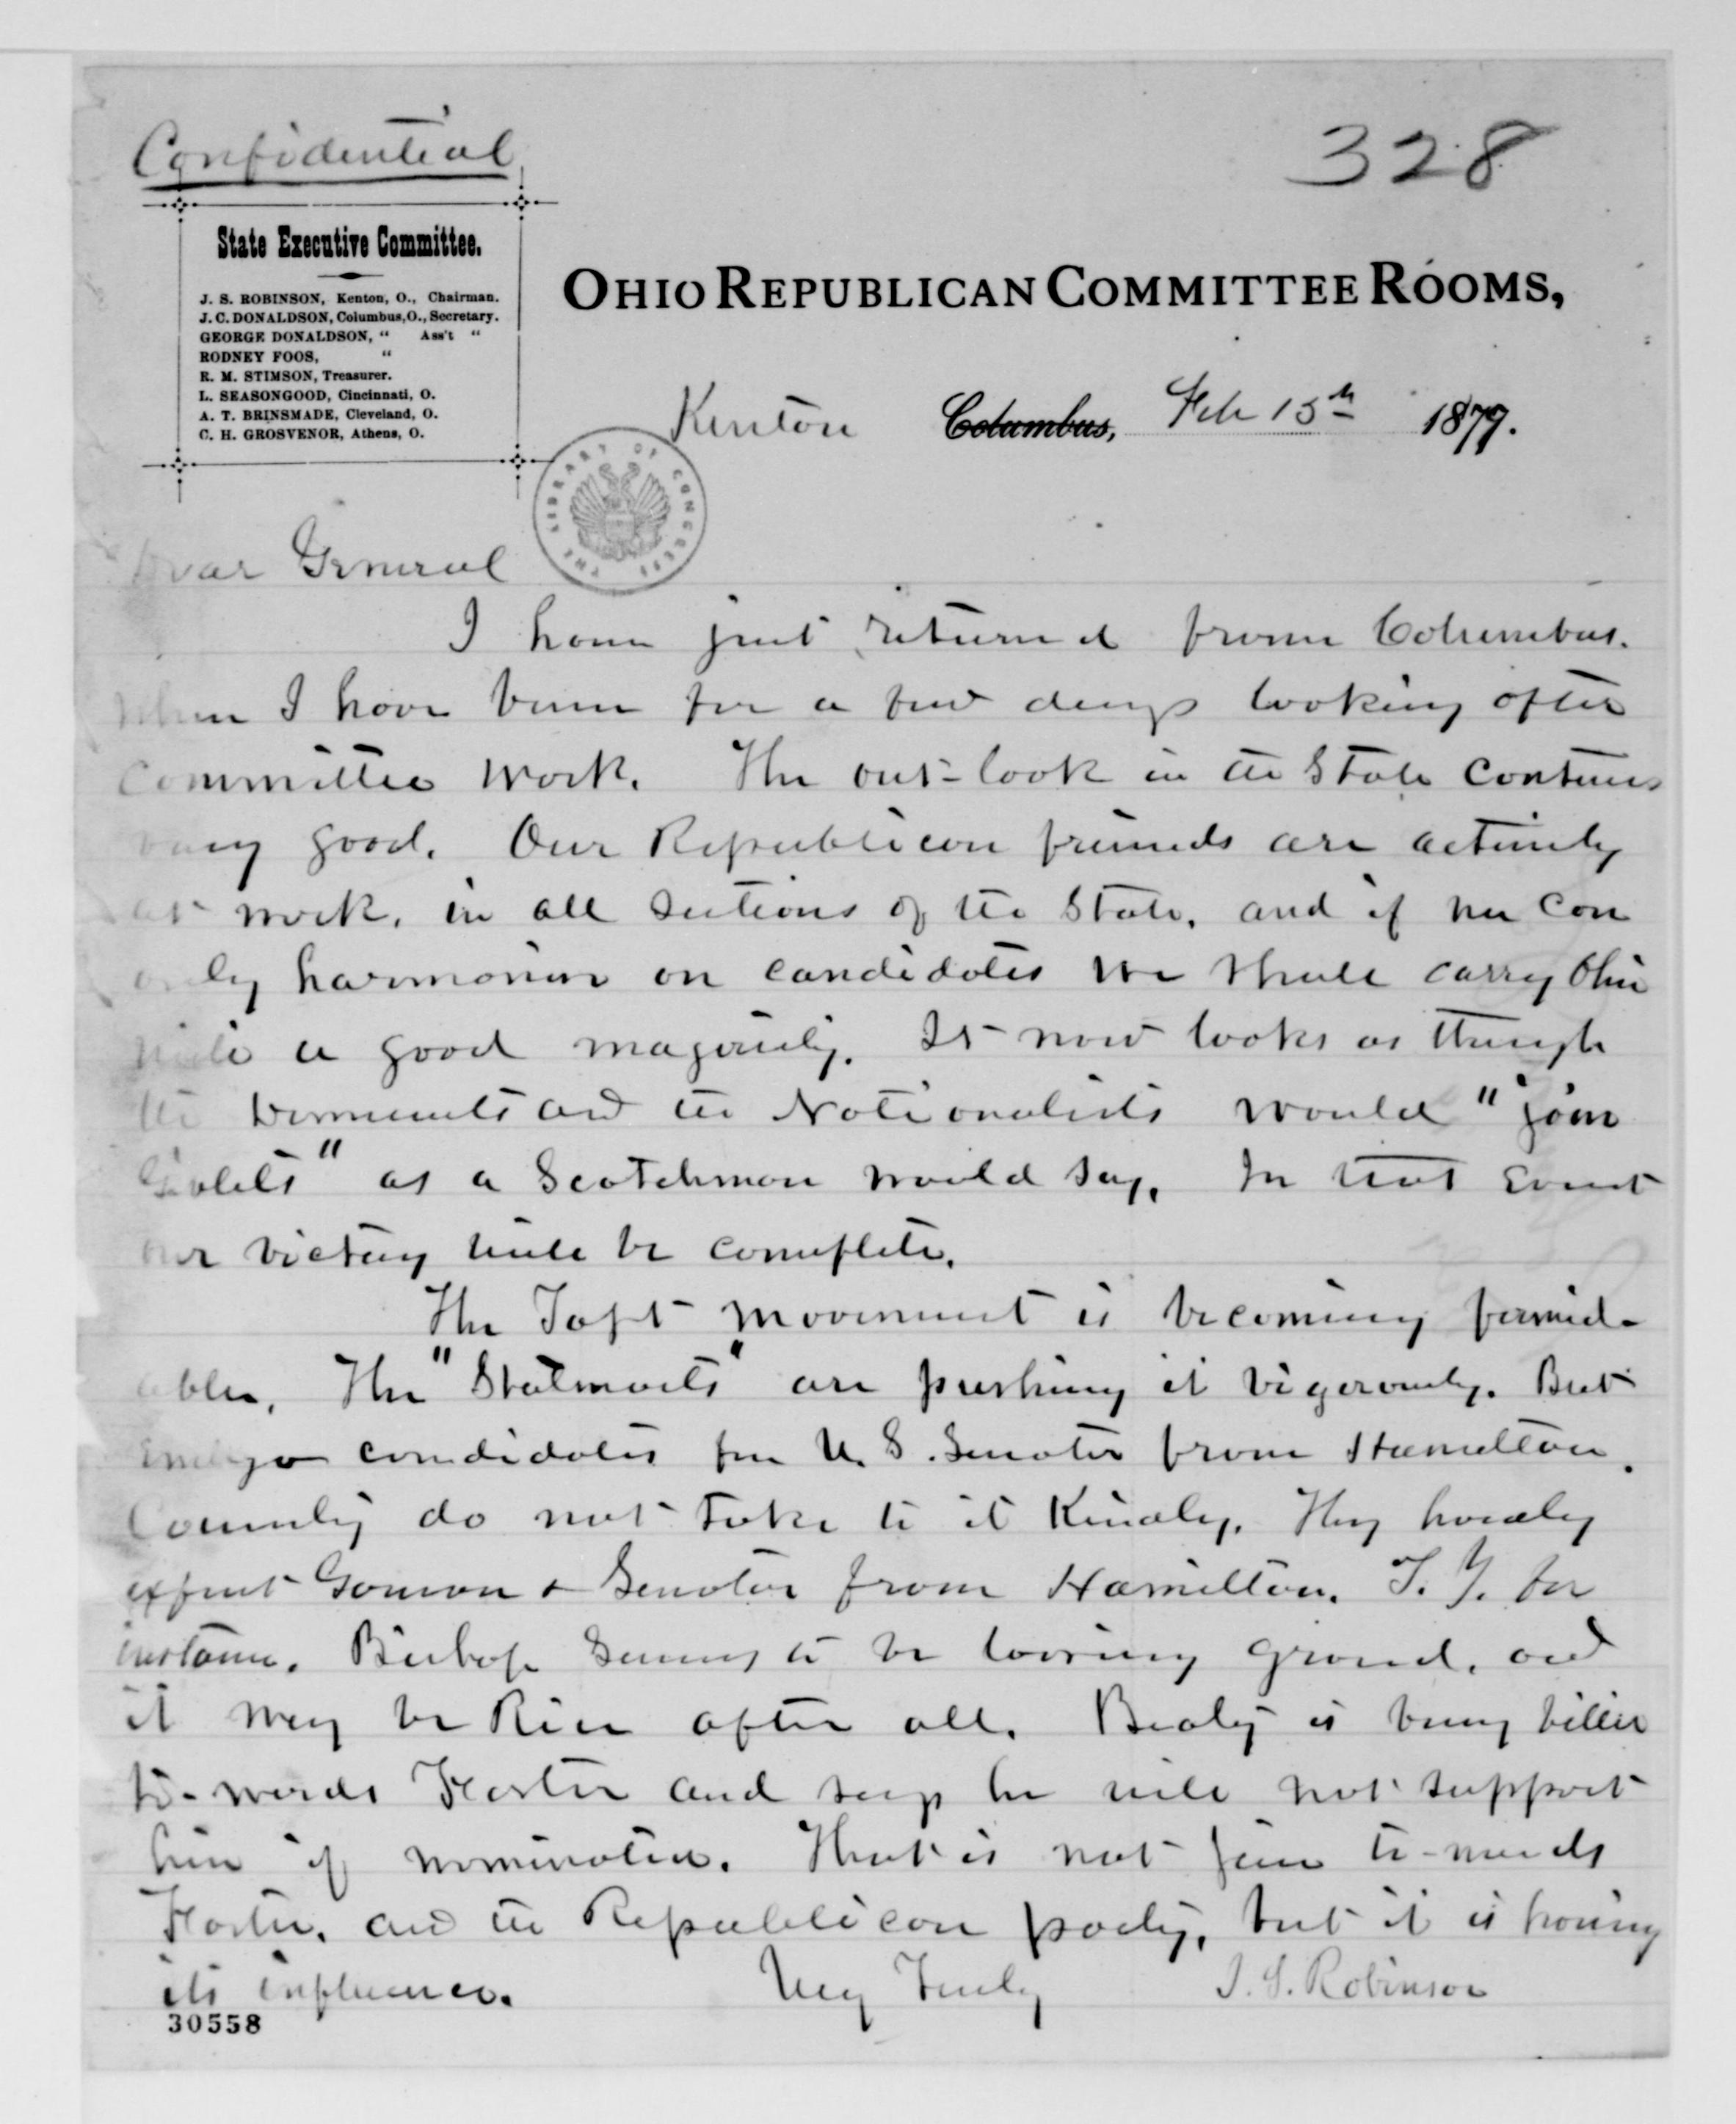 Confidential
328
State Executive Committee.
J. S. ROBINSON, Kenton, O., Chairman.
J. C. DONALDSON, Columbus, O., Secretary.
GEORGE DONALDSON, " Ass't "
RODNEY FOOS, "
R. M. STIMSON, Treasurer.
L. SEASONGOOD, Cincinnati, O.
A. T. BRINSMADE, Cleveland, O.
C. H. GROSVENOR, Athens, O.
OHIO REPUBLICAN COMMITTEE ROOMS,
Kenton Columbus, Feb 15th 1879.
THE LIBRARY OF CONGRESS
Dear General
I have just returned from Columbus.
When I have been for a few days looking after
Committee work. The out-look in the State continues
very good. Our Republican friends are actively
at work, in all sections of the State, and if we can
only harmonize on candidates we shall carry Ohio
with a good majority. It now looks as though
the Democrats and the Nationalists would "join
Giblets" as a Scotchman would say. In that event
our victory will be complete.
The Taft movement is becoming formid-
able. The "Stalwarts" are pushing it vigorously. But
candidates for U. S. Senator from Hamilton
County do not take to it kindly. They hardly
expect Governor & Senator from Hamilton. T. Y. for
instance. Bishop seems to be loosing ground, and
it may be Rice after all. Beaty is very bitter
to-wards Foster and says he will not support
him if nominated. That is not fair to-wards
Foster, and the Republican party, but it is having
its influence. Very Truly J. S. Robinson
30558